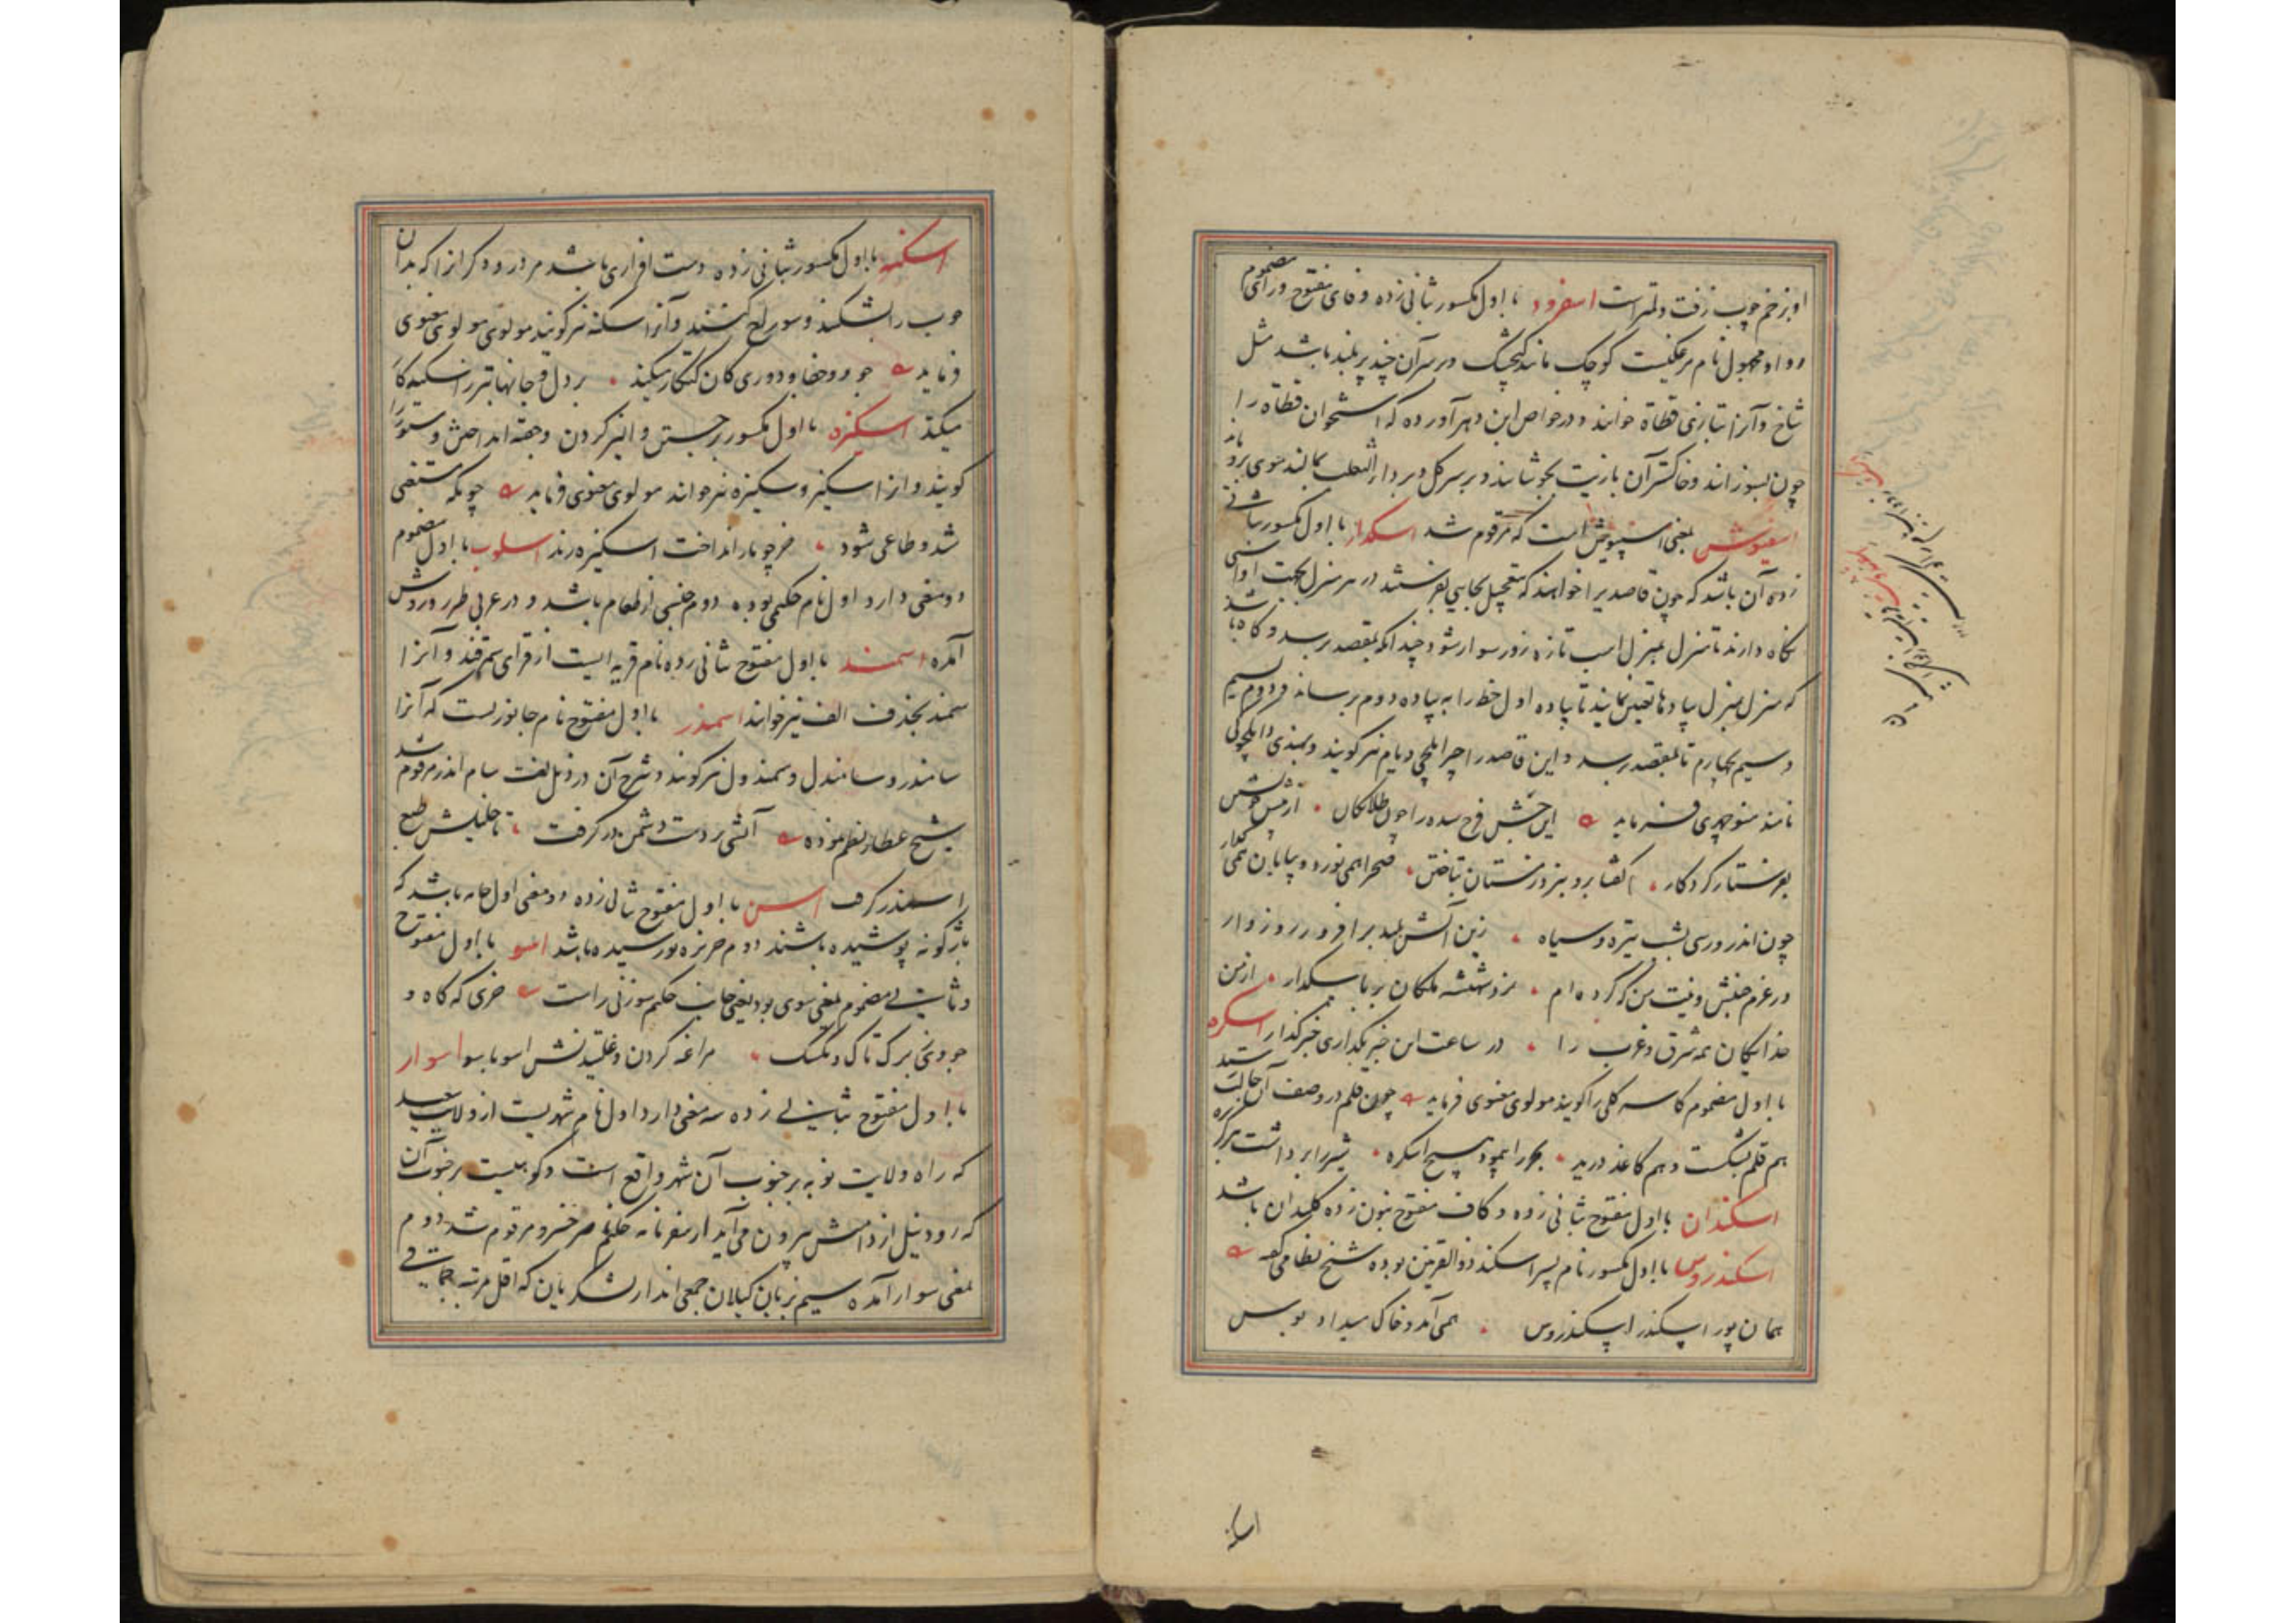 او بزخم چوب زفت و لمترست اسفرود با اول مکسور بثانی زده و فای مفتوح و رای مضموم
و واو مجهول نام مرغکیست کوچک مانند کنجشک و بر سر آن چند پر بلند باشد مثل
شاخ و آنرا بتازی قطاة خوانند و در خواص این دهر آورده که استخوان قطاة را
چون بسوزانند و خاکستر آن با زیت بجوشانند و بر سر کل و بر داء الثعلب بمالند موی برویاند
اسفیوش بمعنی اسپیوش است که مرقوم شد اسکدار با اول مکسور بثانی
زده آن باشد که چون قاصدیرا خواهند که بتعجیل بجایی بفرستند در هر منزل بجهت او اسبی
نگاه دارند تا منزل بمنزل اسب تازه زور سوار شود چندانکه بمقصد برسد و گاه باشد
که منزل بمنزل پیادها تعیین نمایند تا پیاده اول خط را به پیاده دوم برساند و دوم بسیم
و سیم بچهارم تا بمقصد برسد و این قاصد را چر ایلچی و یام نیز گویند و بهندی داکچوکی
نامند منوچهری فرماید این جشن فرخ سده را چون طلایگان از پیش خویش
بفرستاد کردگار گفتا برو بنزد زمستان بتاختن صحرا همی نورد و بیابان همی گذار
چون اندر و رسی بشب تیره و سیاه زین آتش بلند برافروز روزوار
در عزم جنبش و نیت من که کرده ام نزد شهنشه ملکان بر باسکدار از من
خدایگان همه شرق و غرب را در ساعت این خبر بگذاری خبر گذار اسکره
با اول مضموم کاسه گلی را گویند مولوی معنوی فرماید چون قلم در وصف آن حالت رسید
هم قلم بشکست و هم کاغذ درید بحر را پیمود هیچ اسکره شیر را برداشت هرگز بره
اسکندان با اول مفتوح بثانی زده و کاف مفتوح بنون زده کلیدان باشد
اسکندروس با اول مکسور نام پسر اسکندر ذوالقرنین بوده شیخ نظامی گفته
همان پور اسکندر اسکندروس همی آمد و خاک میداد بوس
اسکنه
اسکنه با اول مکسور بثانی زده دست افزاری باشد مر درودگرانرا که بدان
چوب را بشکنند و سوراخ کنند و آنرا سکنه نیز گویند مولوی معنوی
فرماید جور و جفا و دوری کان کنکار میکند بر دل و جانها تبر
میکند اسکیزه با اول مکسور برجستن و الیز کردن و جفته انداختن ستور را
گویند و آنرا سکیز و سکیزه نیز خوانند مولوی معنوی فرماید چونکه مستغنی
شد و طاغی شود خر چو بار انداخت اسکیزه زند اسلوب با اول مضموم
دو معنی دارد اول نام حکیمی بوده دوم جنسی از طعام باشد و در عربی طرز و روش
آمده اسمند با اول مفتوح بثانی زده نام قریه ایست از قرای سمرقند و آنرا
سمند بحذف الف نیز خوانند اسمندر با اول مفتوح نام جانوریست که آنرا
سامندر و سامندل و سمندول نیز گویند و شرح آن در ذیل لغت سام اندر مرقوم شد
شیخ عطار نظم نموده آتشی بر دست دشمن در گرفت تا خلیلش طبع
اسمندر گرفت اسن با اول مفتوح بثانی زده دو معنی اول جامه باشد که
باژگونه پوشیده باشند دوم خربزه نورسیده باشد اسو با اول مفتوح
و ثانی مضموم بمعنی سوی بود یعنی جانب حکیم سوزنی راست خری که گاه و
جو وی برگ تاک و تکسک مراغه کردن و غلتیدنش اسوباسو اسوار
با اول مفتوح بثانی زده سه معنی دارد اول نام شهریست از ولایت صعید
که راه ولایت نوبه بر جنوب آن شهر واقع است و کوهیست بر جنوب آن
که رود نیل از دامنش بیرون می آید از سفرنامه حکیم ناصر خسرو مرقوم شد دوم
بمعنی سوار آمده سیم بزبان گیلان جمعی اند از لشکریان که اقل مرتبه